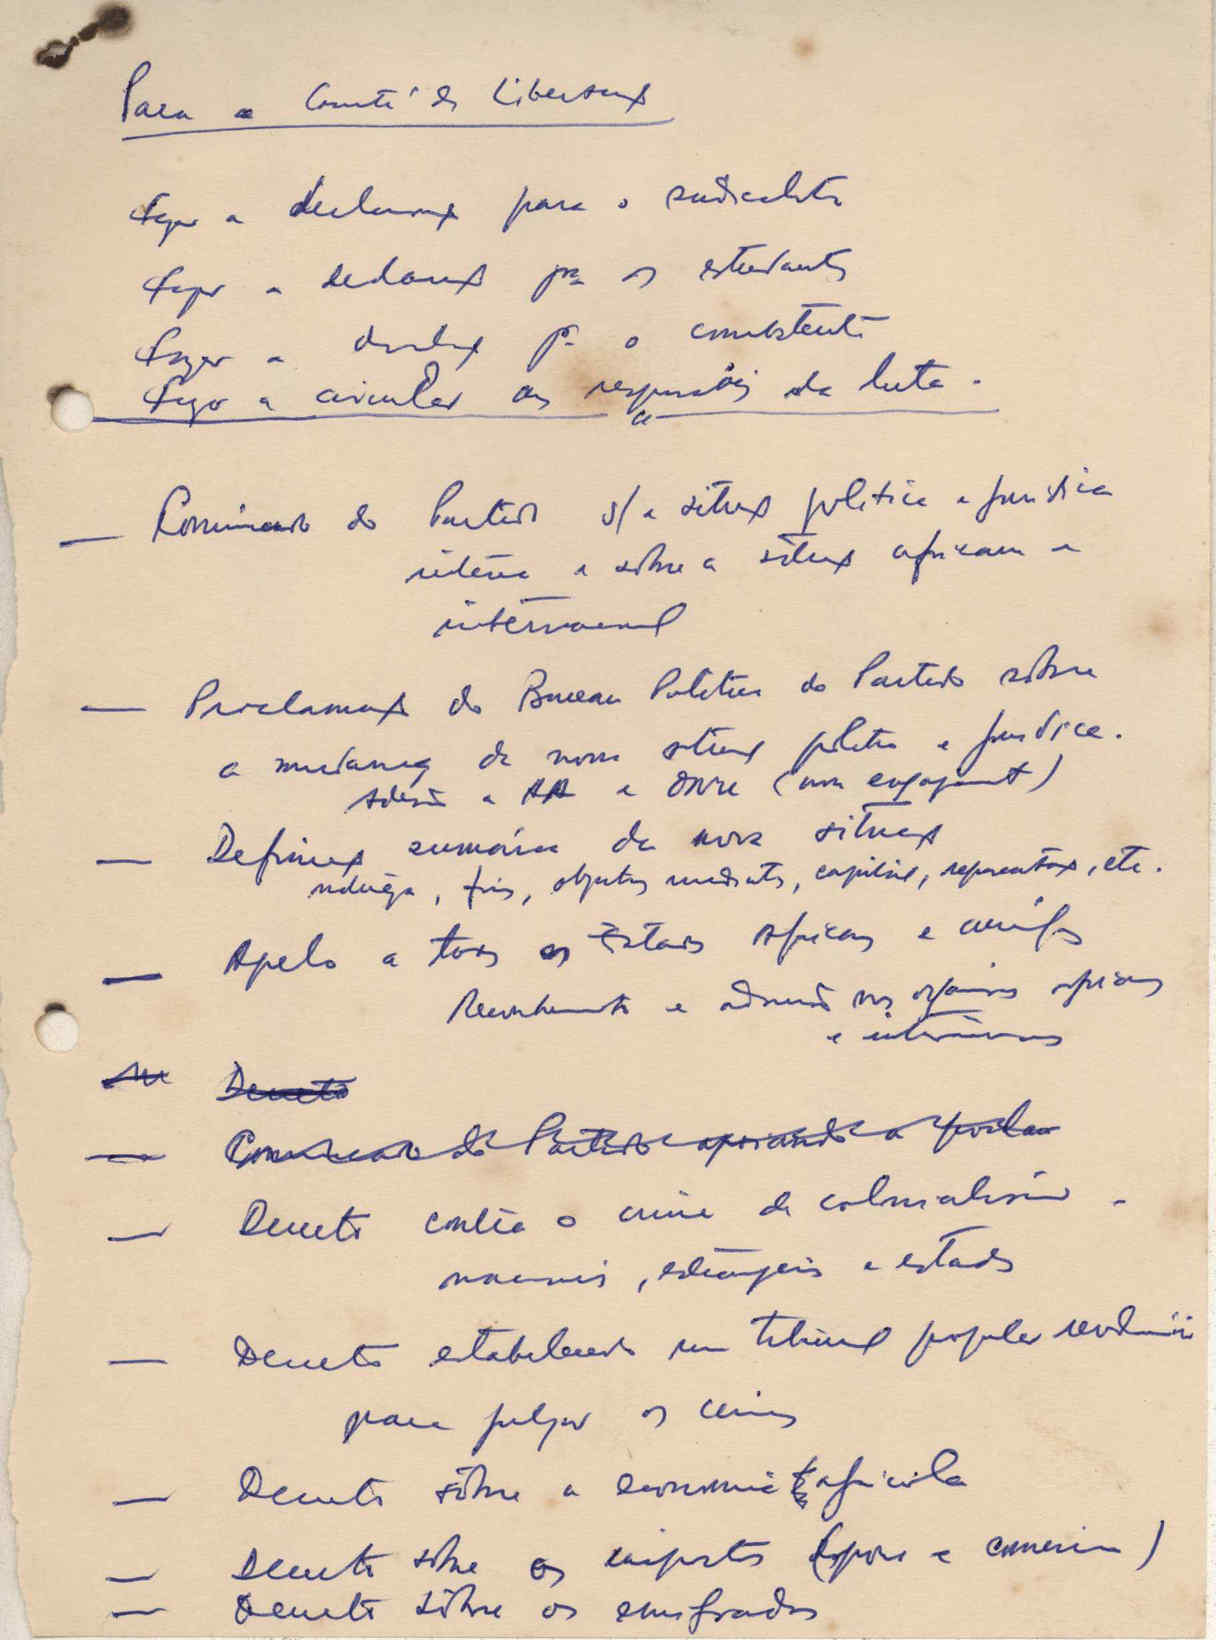 Para o Comité de Libertação
Fazer a declaração para o sindicalista
Fazer a declaração pra os estudantes
Fazer a pª o combatente
Fazer a circular aos responsáveis da luta.
— Comunicado do Partido s/ a situação politica e juridica
interna e sobre a situação africana e
internacional
— Proclamação do Bureau Politico do Partido sôbre
a mudança da nova situação politica e juridica.
Adesão a AA e ONU (non engagement)
— Definição sumária da nova situação
fins, objectivos imediatos, capital, representação, etc.
— Apelo a todos os Estados Africanos e
Reconhecimento e admissão nos orgãos africanos
e internacionais
Decreto
— Comunicado do Partido apoiando a
— Decreto contra o crime de colonialismo -
nacionais, estrangeiros e estados
— Decreto estabelecendo um tribunal popular revolucionário
para julgar os crimes
— Decreto sôbre a economia agricola
— Decreto sôbre os impostos ( e comercio)
— Decreto sôbre os emigrados